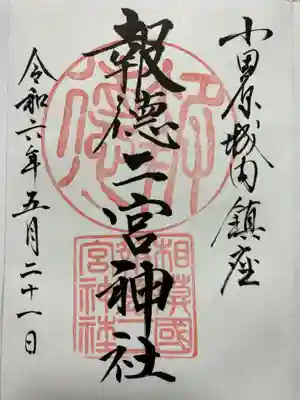 小田原城内鎮座
報徳二宮神社
令和六年五月二十一日
報徳
相模國
報徳二
宮神社